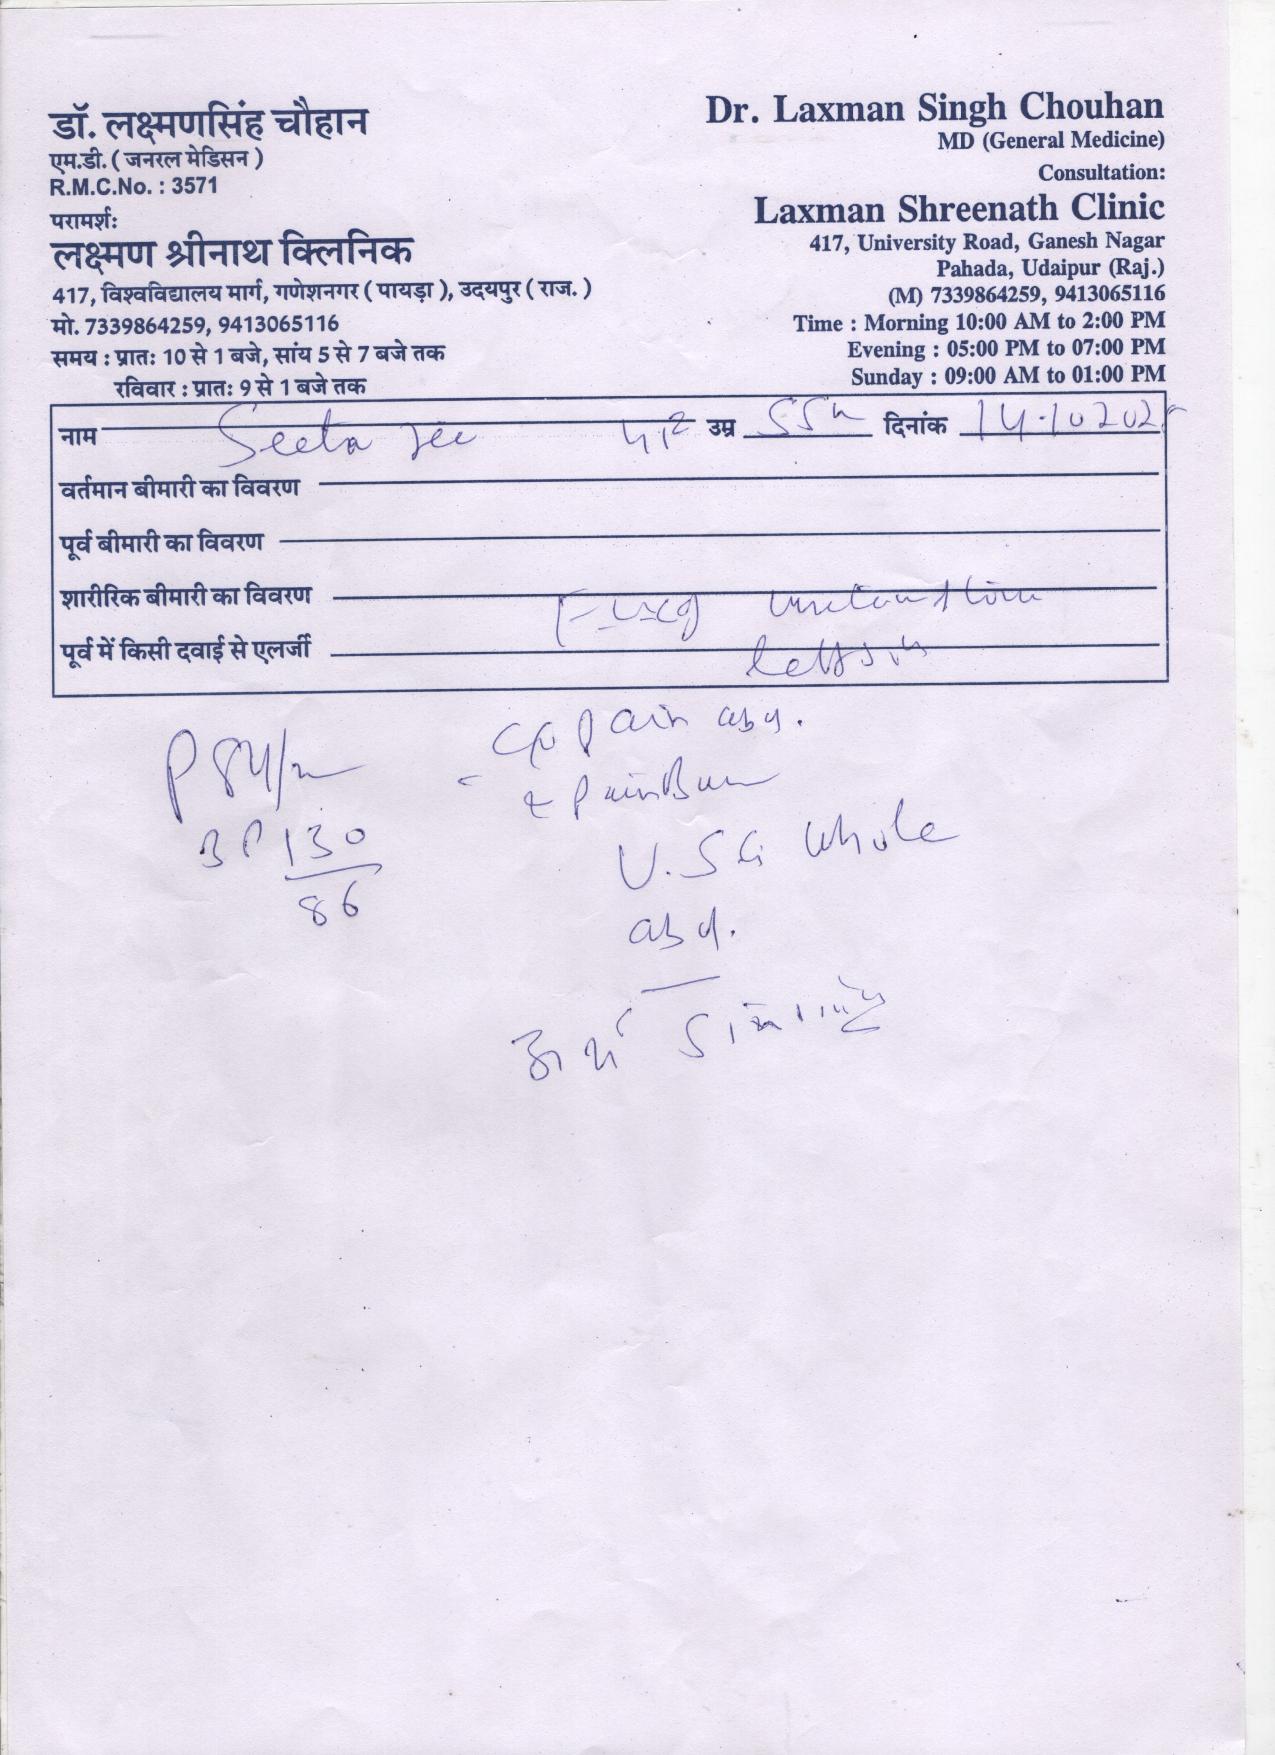 डॉ. लक्ष्मणसिंह चौहान
एम.डी. ( जनरल मेडिसन )
R.M.C.No. : 3571
परामर्शः
लक्ष्मण श्रीनाथ क्लिनिक
417, विश्वविद्यालय मार्ग, गणेशनगर ( पायड़ा ), उदयपुर ( राज. )
मो. 7339864259, 9413065116
समय : प्रातः 10 से 1 बजे, सांय 5 से 7 बजे तक
रविवार : प्रातः 9 से 1 बजे तक
Dr. Laxman Singh Chouhan
MD (General Medicine)
Consultation:
Laxman Shreenath Clinic
417, University Road, Ganesh Nagar
Pahada, Udaipur (Raj.)
(M) 7339864259, 9413065116
Time : Morning 10:00 AM to 2:00 PM
Evening : 05:00 PM to 07:00 PM
Sunday : 09:00 AM to 01:00 PM
नाम Seeta उम्र 55 दिनांक 14.10.2025
वर्तमान बीमारी का विवरण
पूर्व बीमारी का विवरण
शारीरिक बीमारी का विवरण
पूर्व में किसी दवाई से एलर्जी
P 84/m
BP 130/86
c/o Pain abd.
U.S.G whole
abd.